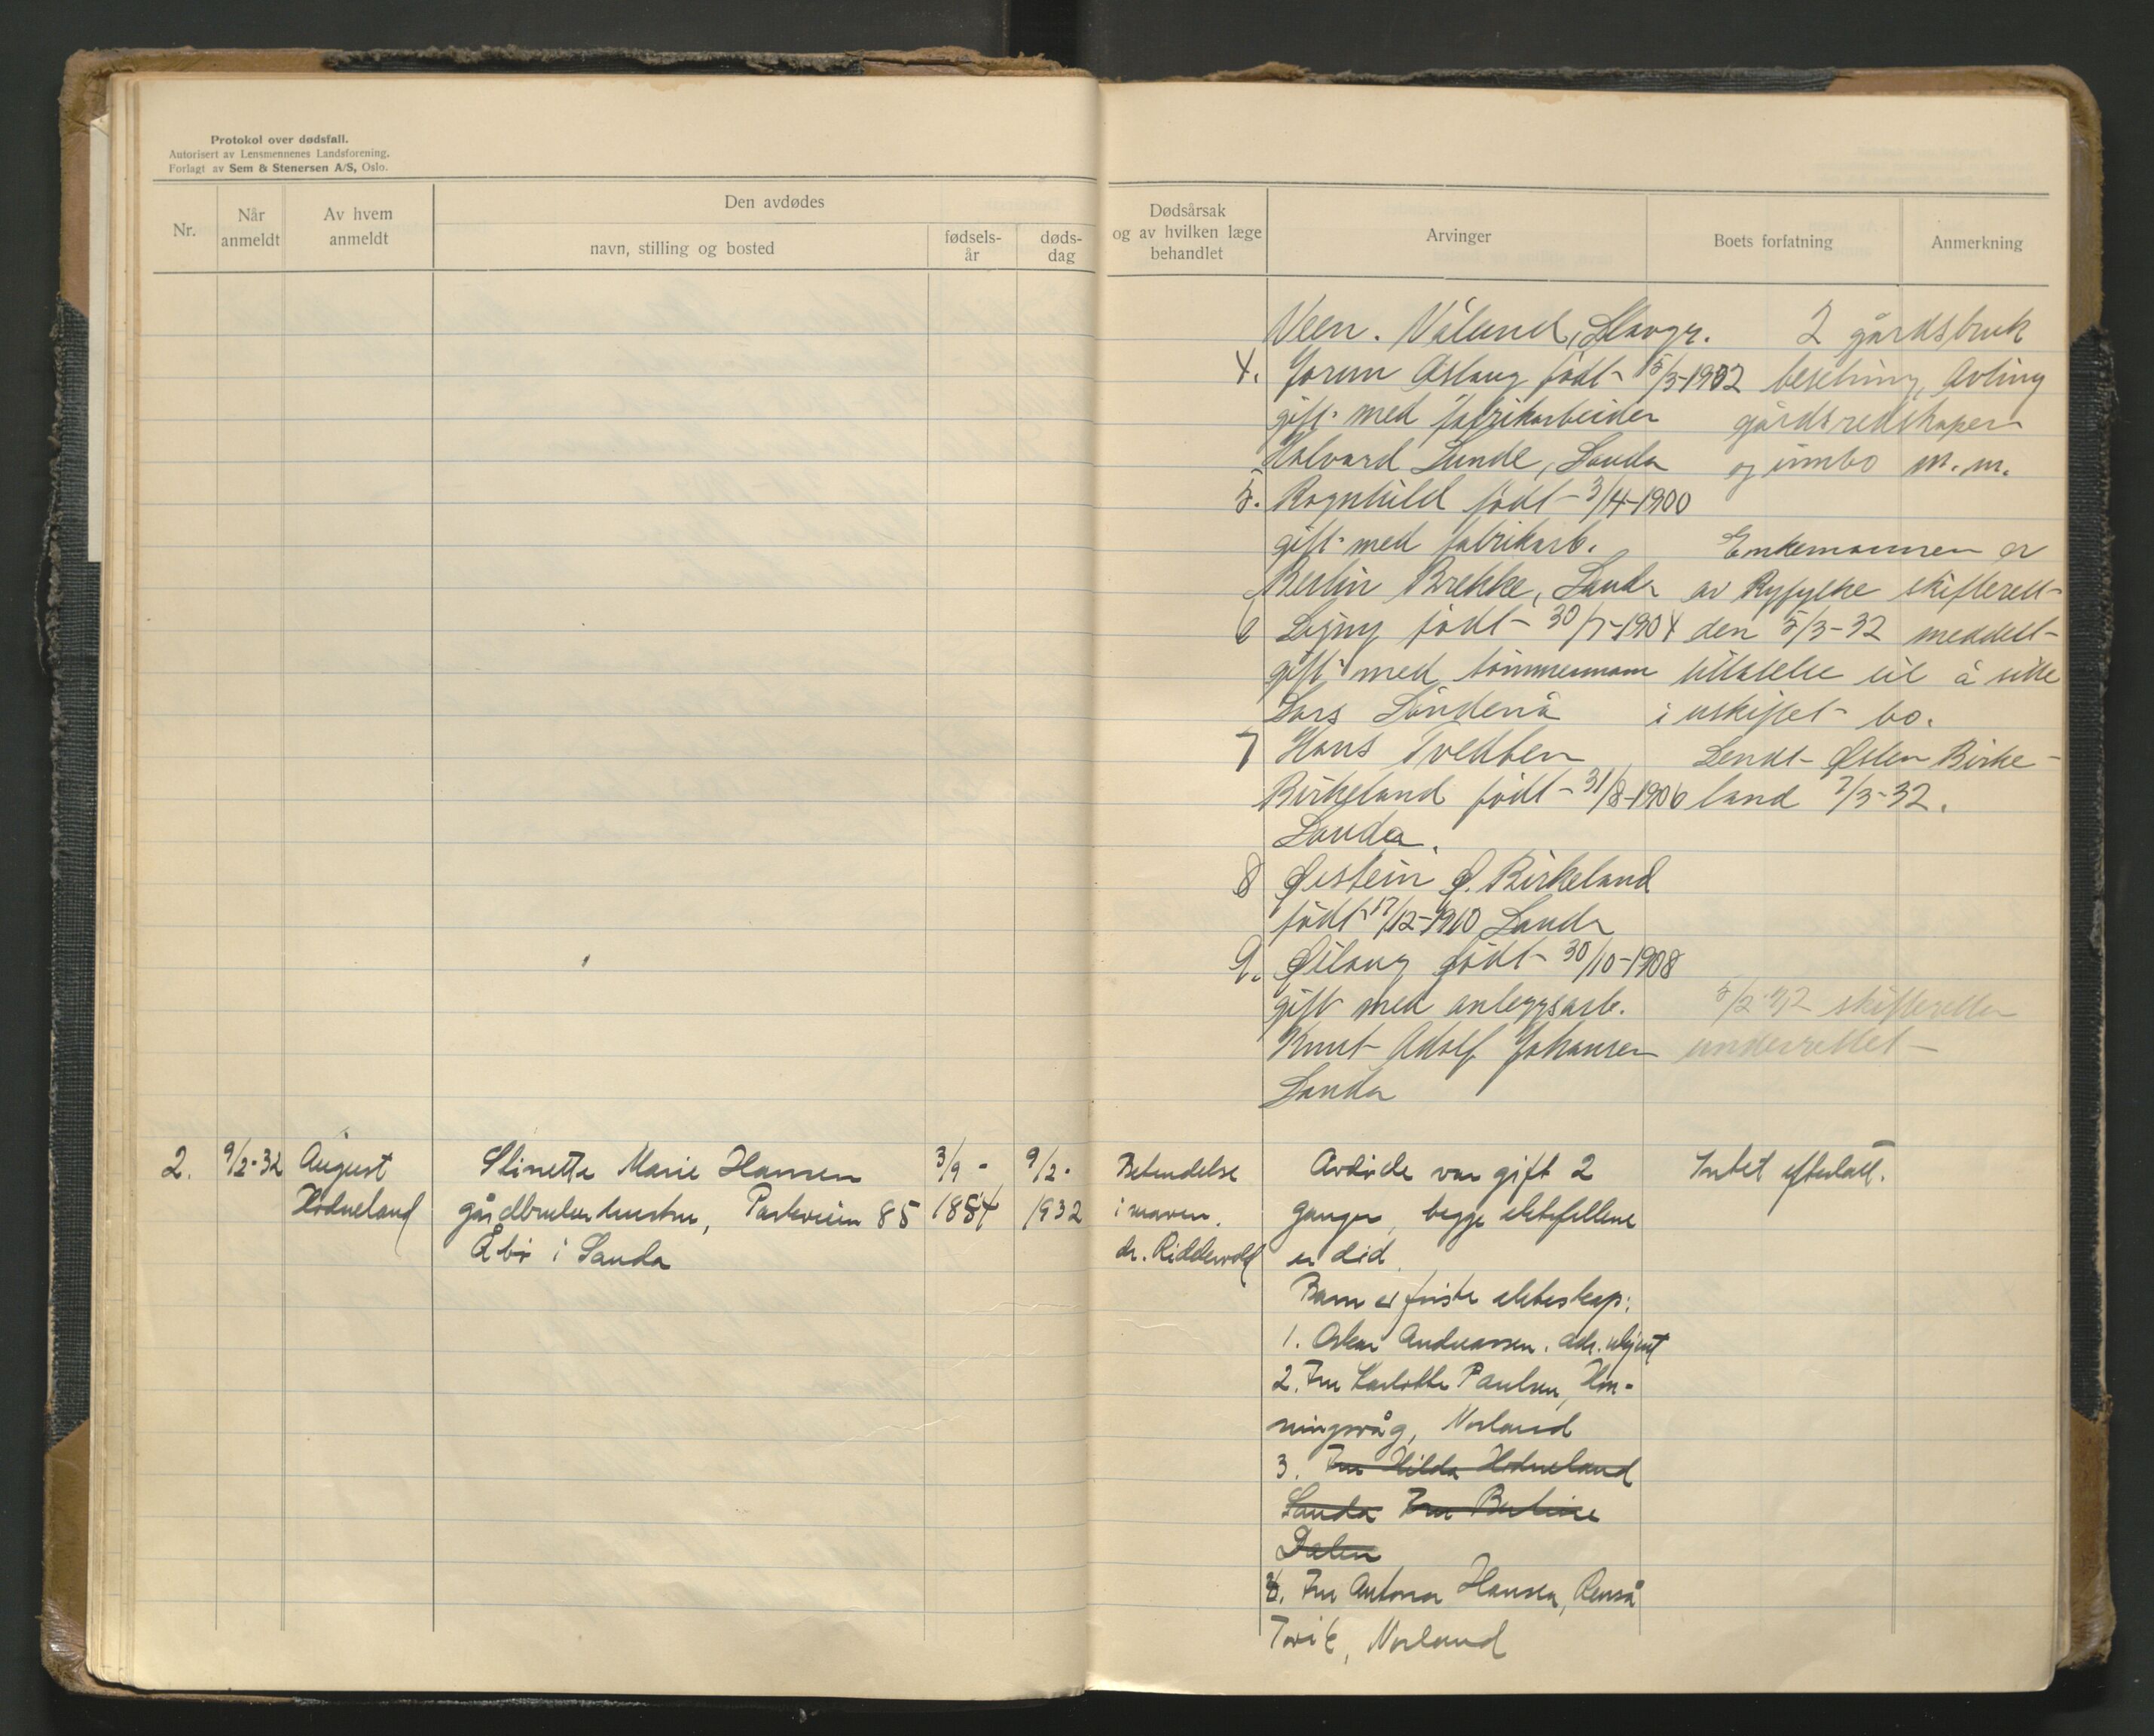 Protokol over dødsfall.
Autorisert av Lensmennenes Landsforening.
Forlagt av Sem & Stenersen A/S, Oslo.
Nr.
Når anmeldt
Av hvem anmeldt
Den avdødes
navn, stilling og bosted
fødsels-år
døds-dag
Dødsårsak og av hvilken læge behandlet
Arvinger
Boets forfatning
Anmerkning
Veen. Våland, Stavgr.
4. Jorun Aslaug født 15/3-1902
gift med fabrikarbeider
Halvard Lunde, Sauda
5. Ragnhild født 3/4-1900
gift med fabrikarb.
Bertin Brekke, Sauda
6 født 30/7-1904
gift med tømmermann
Lars Sandenå
7 Hans Tvedten
Birkeland født 31/8-1906
Sauda.
8 Øistein Ø. Birkeland
født 17/12-1910 Sauda
9. Øilaug født 30/10-1908
gift med anleggsarb.
Knut Adolf Johansen
Sauda
2 gårdsbruk
besetning, Avling
gårdsredskaper
og innbo m.m.
Enkemannen er
av Ryfylke skifterett
den 5/3-32 meddelt
tillatelse til å sitte
i uskiftet bo.
Sendt Østen Birke-
land 7/3-32.
5/2-32 skifteretten
underrettet
2.
9/2-32
August
Hodneland
Stinette Marie Hansen
gårdbrukerhustru, Parkveien 85
Åbø i Sauda
3/9-
1854
9/2-
1932
Betendelse
i maven.
dr. Riddervold
Avdøde var gift 2
ganger, begge ektefellene
er død.
Barn av første ekteskap:
1. Oskar Andreassen. adr. ukjent
2. Fru Karlotte Paulsen, Hon-
ningsvåg, Norland
3. Fru Hilda Hodneland
Sauda Fru Bertine
Dalen
3. Fru Antona Hansen, Renså
Tovik, Norland
Intet efterlatt.